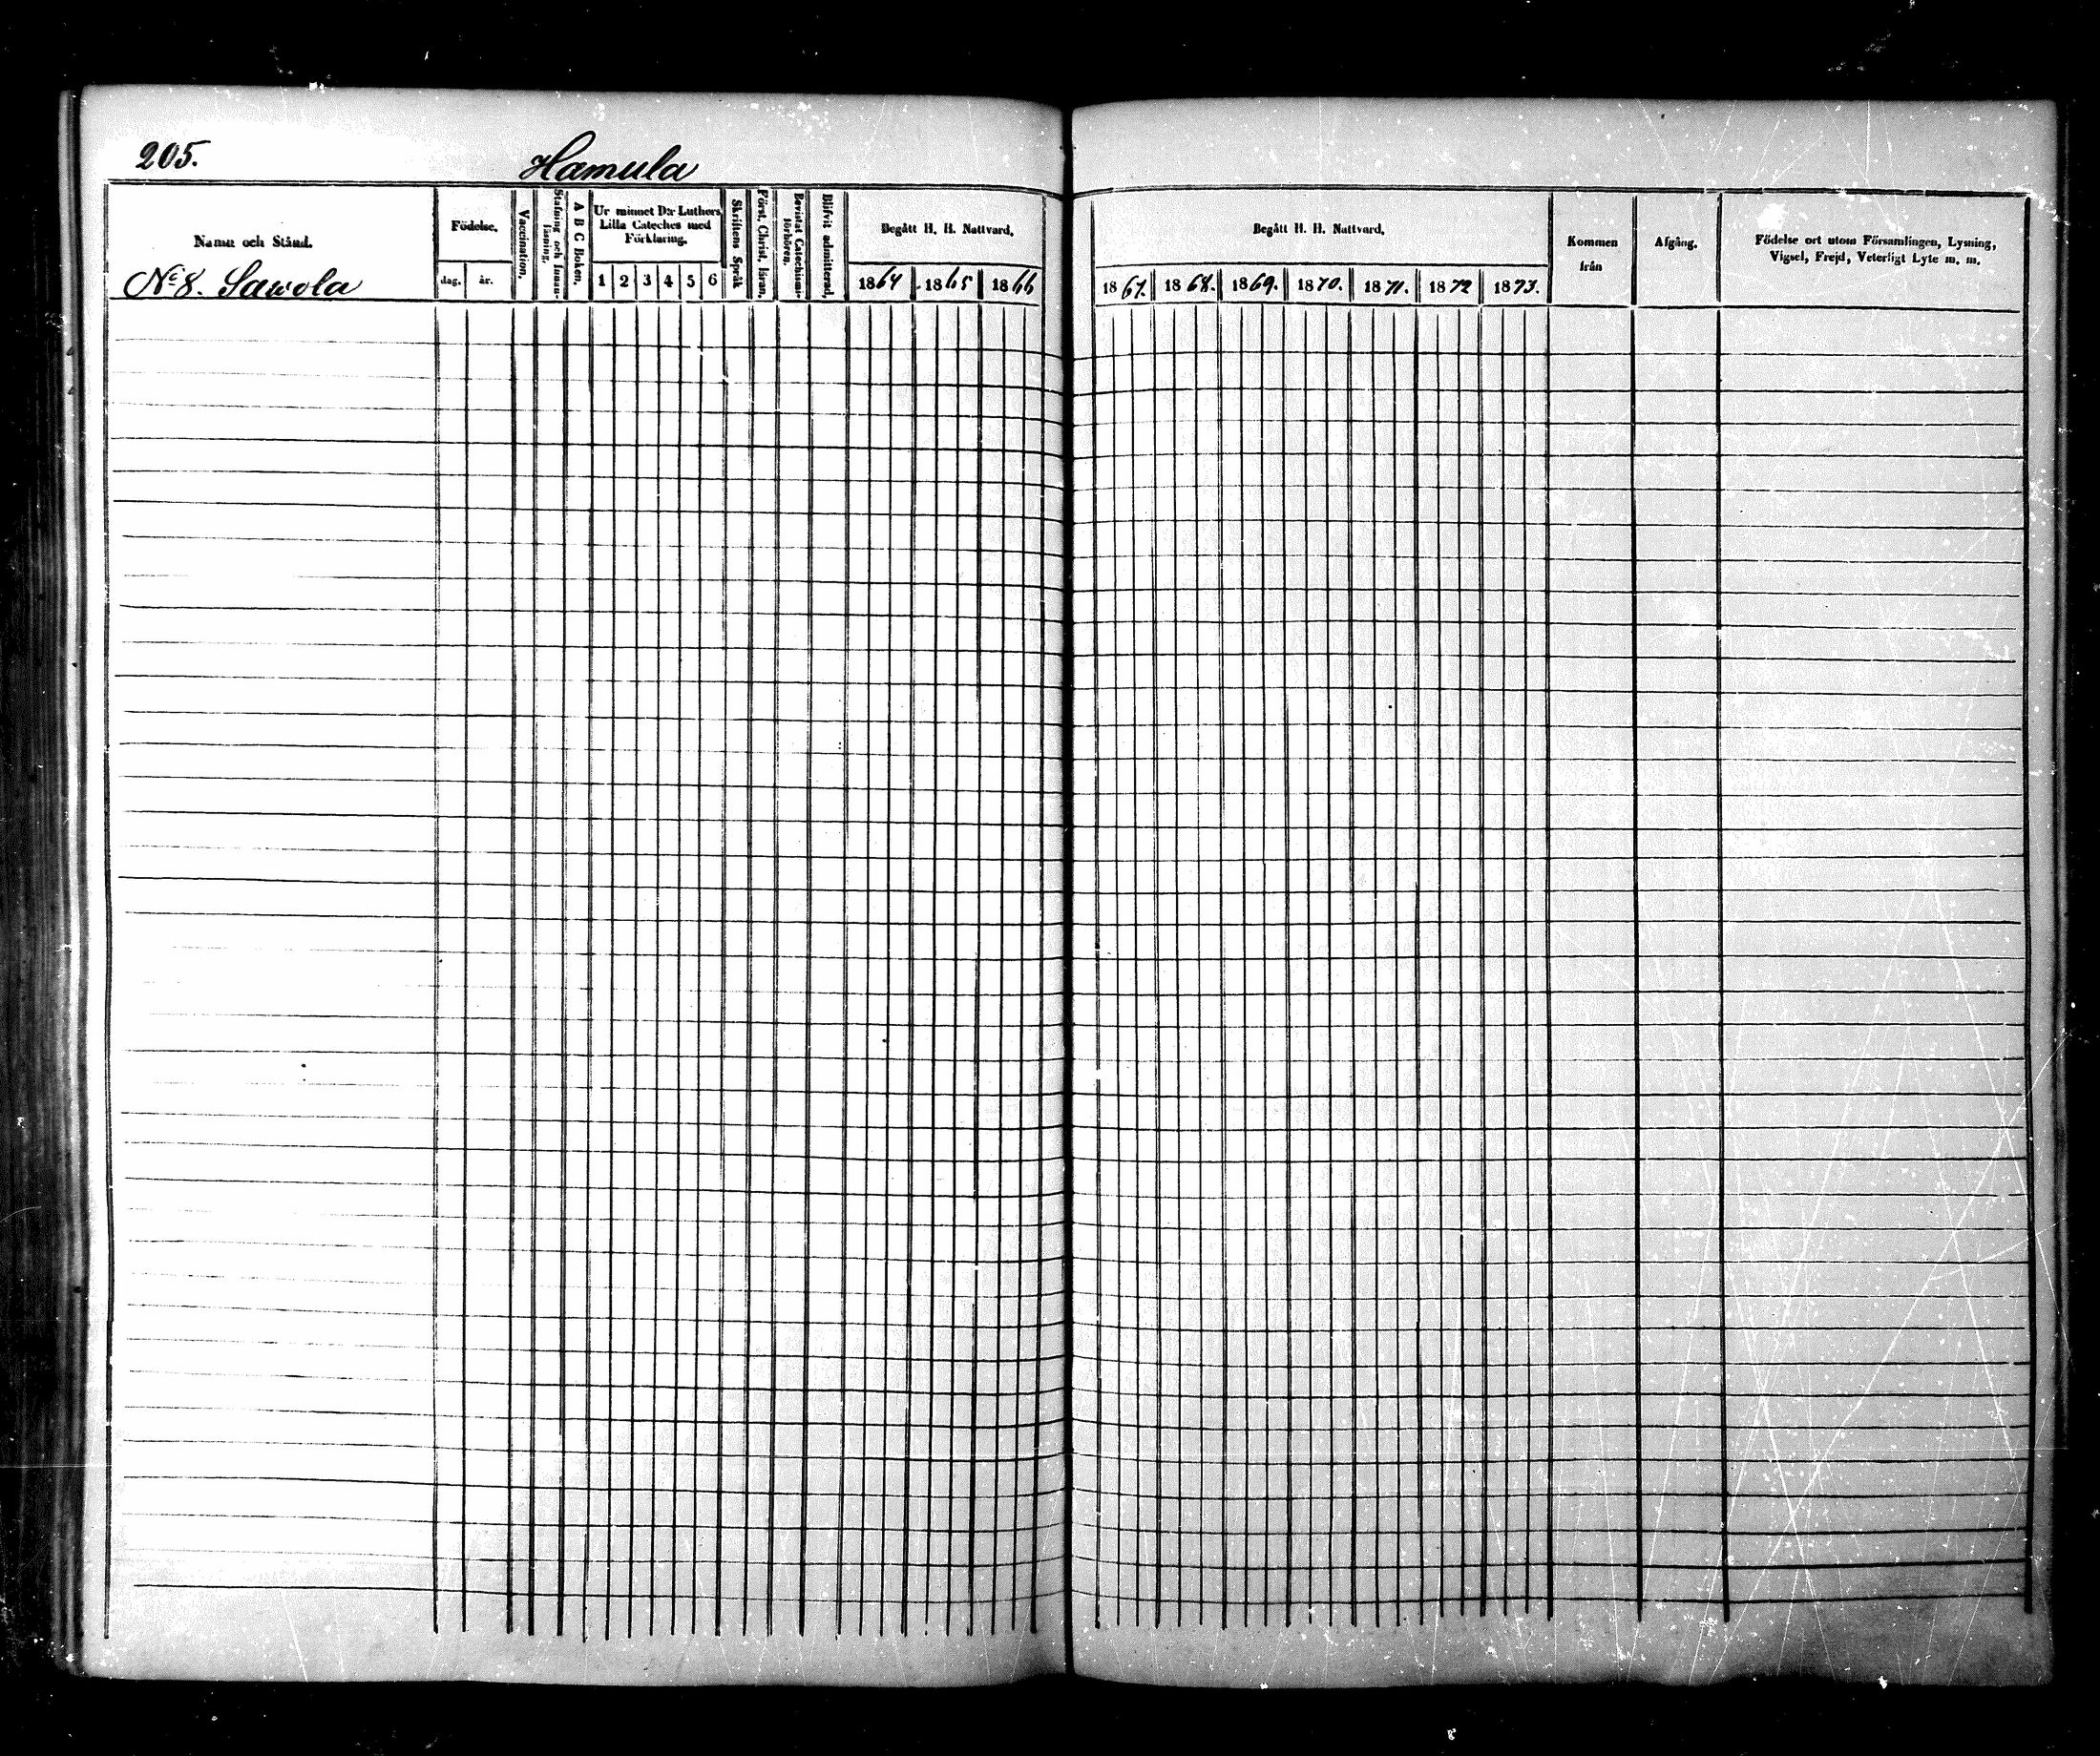 205.
Hamula
Namn och Stånd.
No 8. Sawola
Födelse.
dag. år.
Vaccination.
Stafning och Innanläsning.
A B C Boken.
Ur minnet D:r Luthers
Lilla Cateches med
Förklaring.
1 2 3 4 5 6
Skriftens Språk
Först. Christ. läran.
Bevistat Catechismiförhören.
Blifvit admitterad.
Begått H. H. Nattvard.
1864 1865 1866
Begått H. H. Nattvard.
1867. 1868. 1869. 1870. 1871. 1872 1873.
Kommen
från
Afgång.
Födelse ort utom Församlingen, Lysning,
Vigsel, Frejd, Veterligt Lyte m. m.